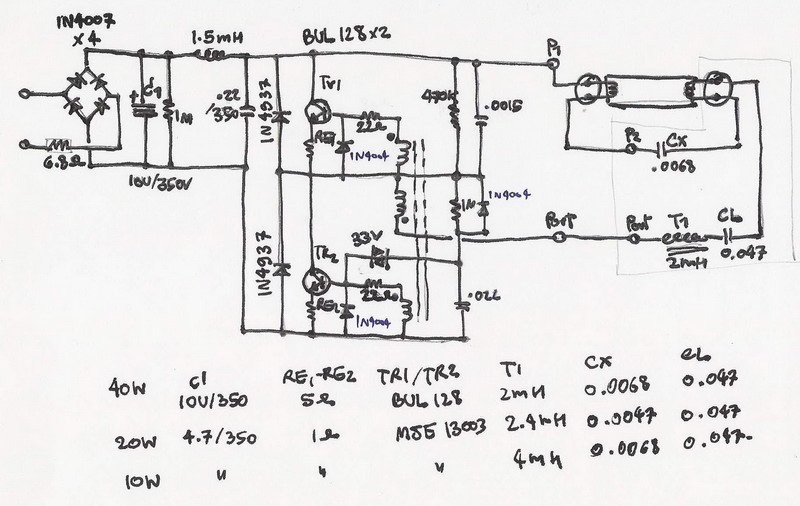 IN4007
x 4
1.5mH
BUL 128x2
P1
Tr1
470K
.0015
.22
/350
IN4937
RE1
22Ω
IN4004
+
1M
6.8Ω
10U/350V
P2
CX
.0068
IN4004
Port
Port
T1
2mH
CL
0.047
33V
IN4937
TR2
22Ω
RE2
IN4004
.022
C1 RE1-RE2 TR1/TR2 T1 CX CL
40W 10U/350 5Ω BUL 128 2mH 0.0068 0.047
20W 4.7/350 1Ω MJE 13003 2.4mH 0.0047 0.047
10W " " " 4mH 0.0068 0.047